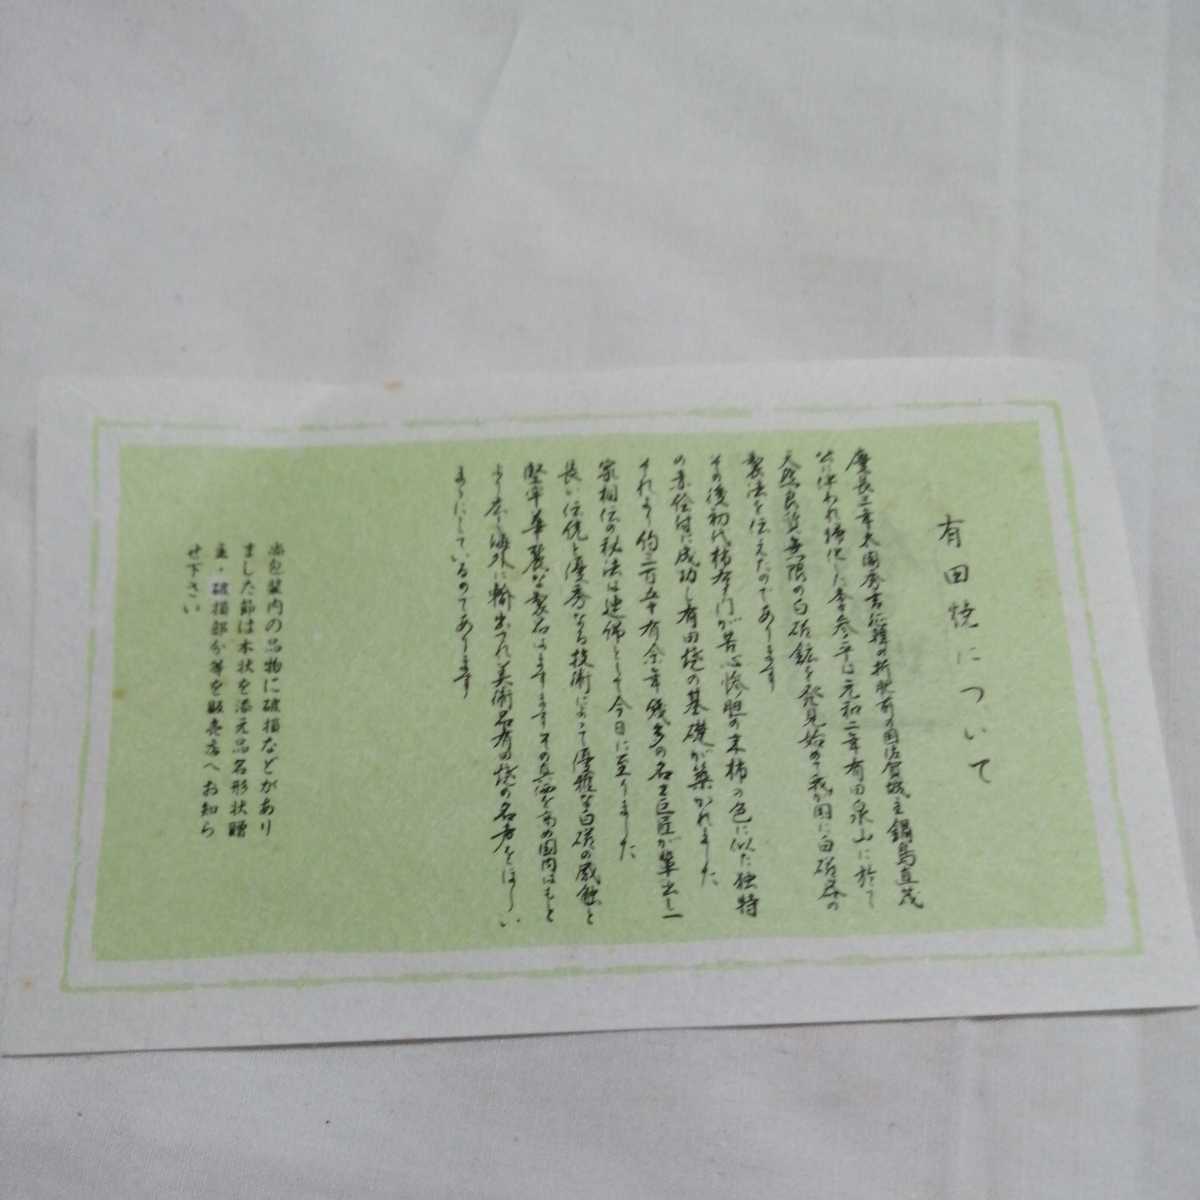 有田焼について
慶長三年太閤秀吉征韓の折肥前の国佐賀城主鍋島直茂
公に伴われ帰化した李参平は元和二年有田泉山に於て
天然良質無限の白磁鉱を発見始めて我が国に白磁器の
製法を伝えたのであります
その後初代柿右ヱ門が苦心惨胆の末柿の色に似た独特
の赤絵付に成功し有田焼の基礎が築かれました
それより約三百五十有余年幾多の名工巨匠が輩出し一
家相伝の秘法は連綿として今日に至りました
長い伝統と優秀なる技術によって優雅な白磁の感触と
堅牢華麗な製品はますますその真価を高め国内はもと
より広く海外に輸出され美術品有田焼の名声をほしい
まゝにしているのであります
尚包装内の品物に破損などがあり
ました節は本状を添え品名形状贈
主・破損部分等を販売店へお知ら
せ下さい